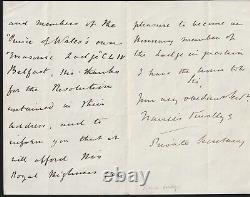 and members of the
"Prince of Wales's own"
"Masonic Lodge" CLIV
Belfast, His thanks
for the Resolution
contained in their
Address, and to
inform you that it
will afford His
Royal Highness
pleasure to become an
Honorary member of
the Lodge in question
I have the honor to be
Sir,
Your very obedient Ser
Francis Knollys
Private Secretary